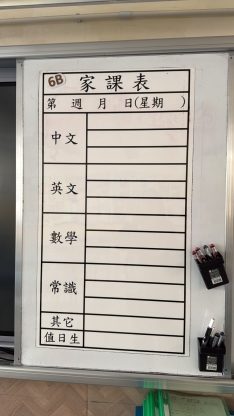 6B 家課表
第 週 月 日(星期 )
中文
英文
數學
常識
其它
值日生